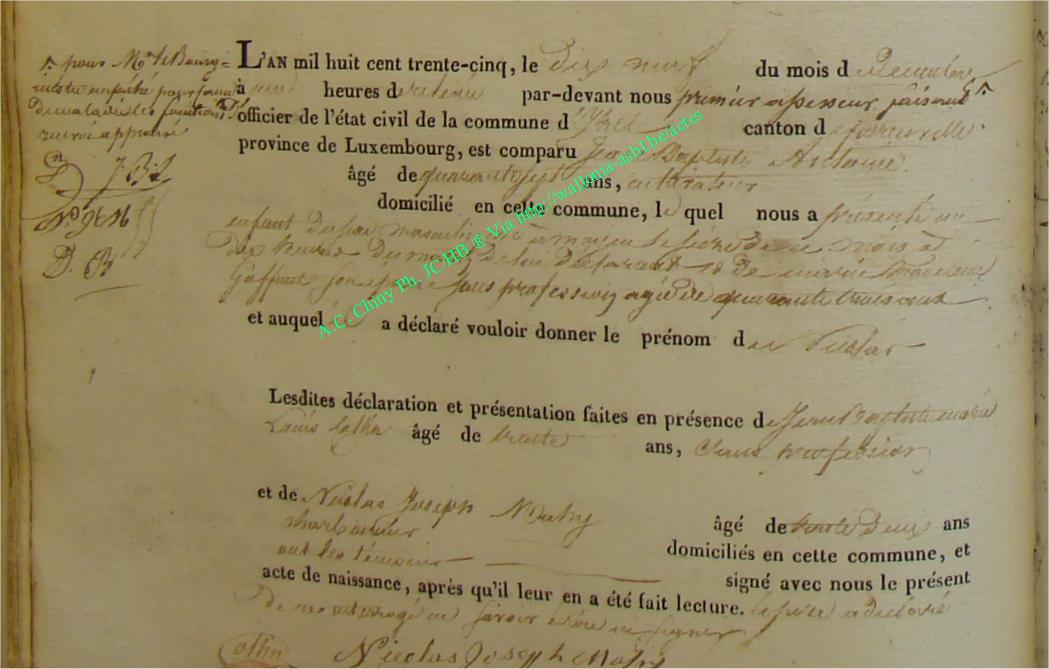 pour Mr le Bourg=
mestre empêché pour cause
De maladie les fonctions D'
renvoi approuvé
J. B. L
D. B
L'AN mil huit cent trente-cinq, le dix neuf du mois d Decembre
à heures d relevée par-devant nous premier assesseur faisant
officier de l'état civil de la commune d' canton d
province de Luxembourg, est comparu Jean Baptiste Antoine
âgé de quarante sept ans, cultivateur
domicilié en cette commune, le quel nous a présenté un
enfant du sexe masculin né à le seize de ce mois à
dix heures du de lui Déclarant et de marie madeleine
Goffinet son épouse sans profession agée de quarante trois ans
et auquel il a déclaré vouloir donner le prénom d e Nicolas
Lesdites déclaration et présentation faites en présence de Jean Baptiste
Louis Collin âgé de trente ans, sans profession
et de Nicolas Joseph âgé de trente Deux ans
charbonnier domiciliés en cette commune, et
ont les témoins signé avec nous le présent
acte de naissance, après qu'il leur en a été fait lecture. le père a déclaré
De ce interrogé ne savoir écrire ni signer
Collin Nicolas Joseph
A.C. Chiny Ph. JC/HB ® Via http://wallonia-asbl.be/actes